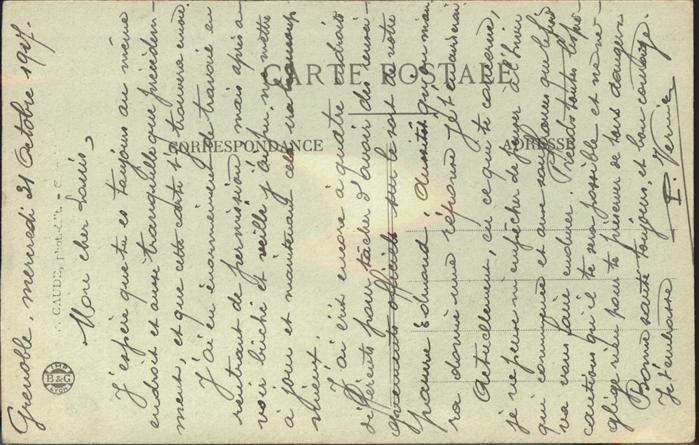 CARTE POSTALE
CORRESPONDANCE
ADRESSE
GAUDE,
IMP.
B&G
LYON
Grenoble, mercredi 31 Octobre 1917.
Mon cher Louis,
J'espère que tu es toujours au même
endroit et aussi tranquille que précédem-
ment, et que cette carte t'y trouvera
J'ai eu énormément de travail en
rentrant de permission, mais après a-
voir bûché et veillé j'ai pu me mettre
à jour et maintenant cela ira beaucoup
mieux.
J'ai écrit encore à quatre endroits
différents pour tâcher d'avoir des rensei-
gnements officiels sur le sort de notre
pauvre Edmond; Aussitôt qu'on m'au-
ra donné une réponse je t'enverrai
Actuellement, en ce qui te concerne,
je ne peux m'empêcher de penser à l'hiver
qui commence et aux souffrances que
va vous faire endurer. Prends toutes les pré-
cautions qu'il te sera possible et ne né-
glige rien pour te préserver de tous dangers
Bonne santé toujours, et bon courage.
Je t'embrasse